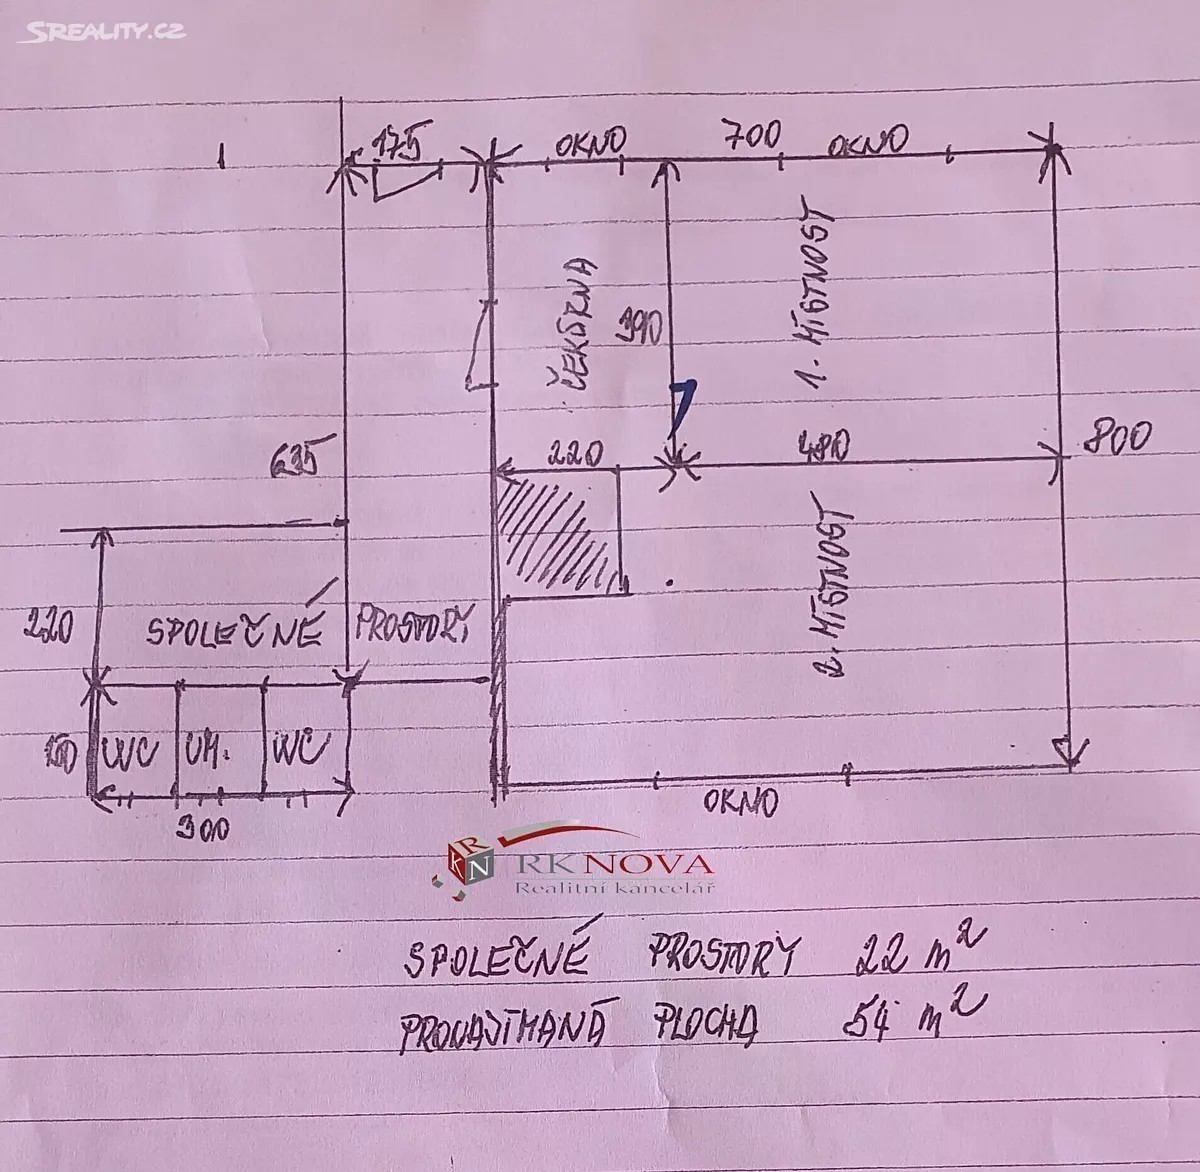 SREALITY.CZ
175
OKNO
700
OKNO
ČEKÁRNA
390
1. MÍSTNOST
635
220
480
800
2. MÍSTNOST
220
SPOLEČNÉ PROSTORY
150
WC
UM.
WC
300
OKNO
RKN
RK NOVA
Realitní kancelář
SPOLEČNÉ PROSTORY 22 m²
PRONAJÍMANÁ PLOCHA 54 m²